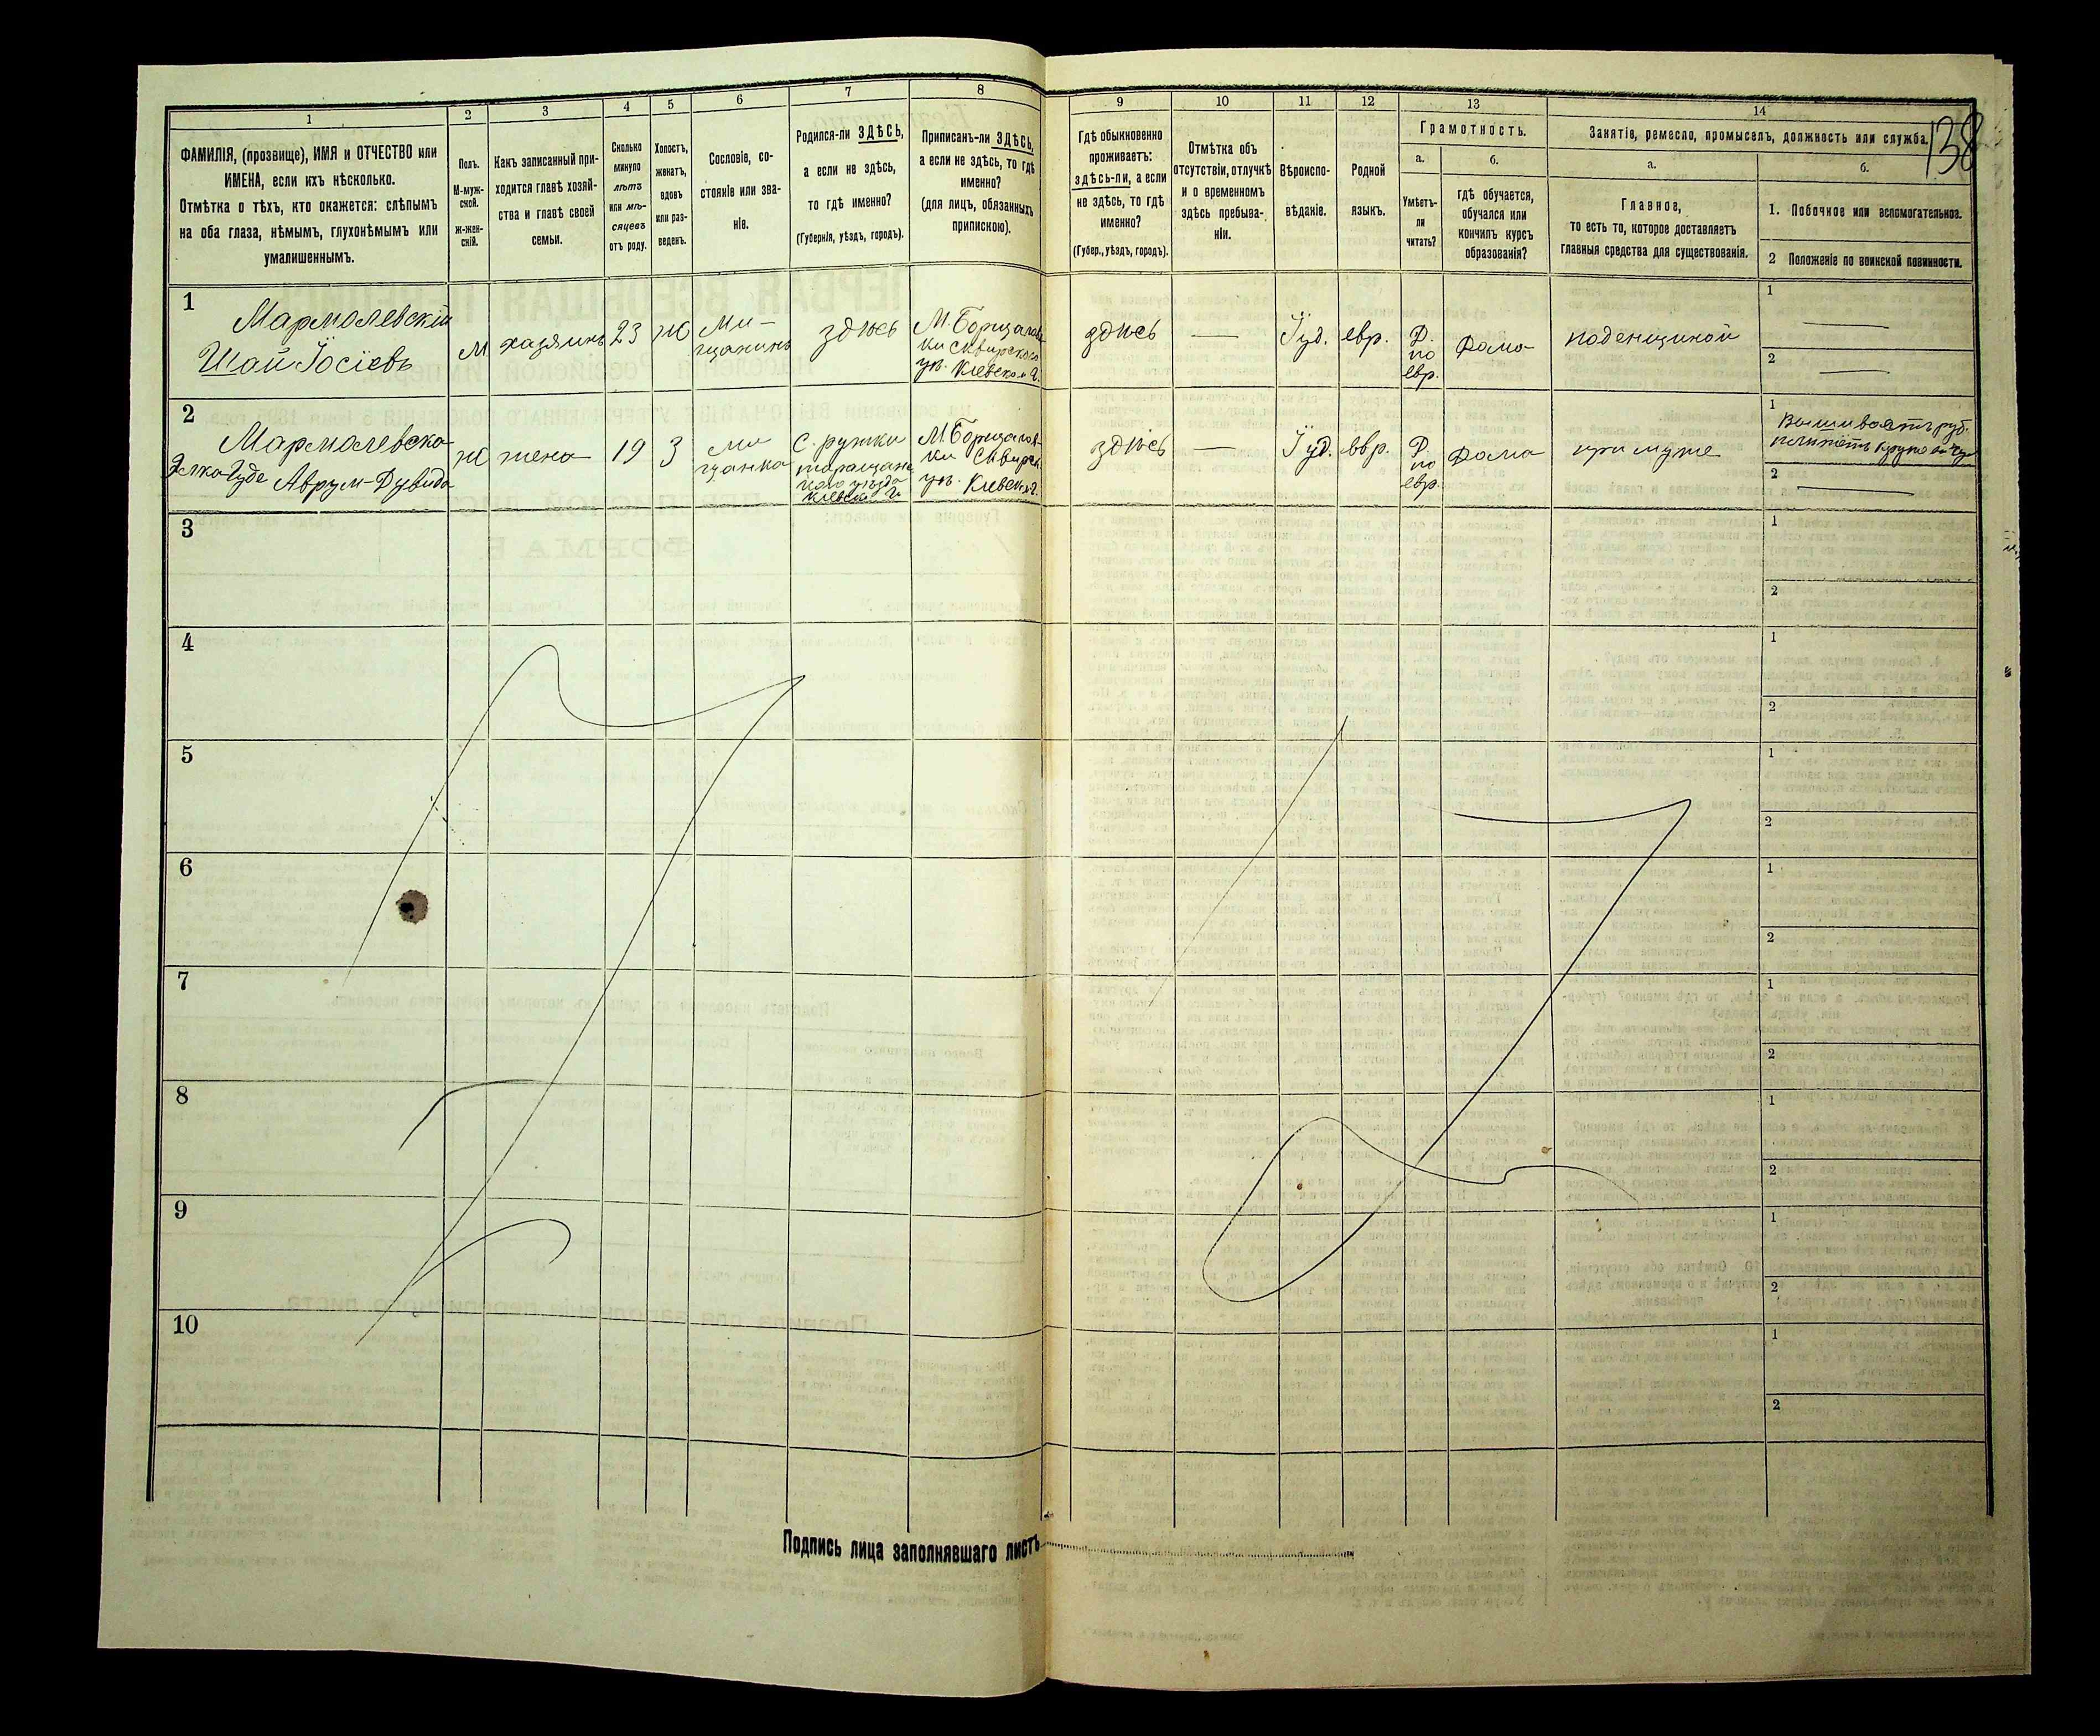 138
1
2
3
4
5
6
7
8
9
10
11
12
13
14
ФАМИЛІЯ, (прозвище), ИМЯ и ОТЧЕСТВО или
ИМЕНА, если ихъ нѣсколько.
Отмѣтка о тѣхъ, кто окажется: слѣпымъ
на оба глаза, нѣмымъ, глухонѣмымъ или
умалишеннымъ.
Полъ.
М-муж-
ской.
ж-жен-
скій.
Какъ записанный при-
ходится главѣ хозяй-
ства и главѣ своей
семьи.
Сколько
минуло
лѣтъ
или мѣ-
сяцевъ
отъ роду.
Холостъ,
женатъ,
вдовъ
или раз-
веденъ.
Сословіе, со-
стояніе или зва-
ніе.
Родился-ли ЗДѢСЬ,
а если не здѣсь,
то гдѣ именно?
(Губернія, уѣздъ, городъ).
Приписанъ-ли ЗДѢСЬ,
а если не здѣсь, то гдѣ
именно?
(для лицъ, обязанныхъ
припискою).
Гдѣ обыкновенно
проживаетъ:
здѣсь-ли, а если
не здѣсь, то гдѣ
именно?
(Губер., уѣздъ, городъ).
Отмѣтка объ
отсутствіи, отлучкѣ
и о временномъ
здѣсь пребыва-
ніи.
Вѣроиспо-
вѣданіе.
Родной
языкъ.
Грамотность.
а.
Умѣетъ-
ли
читать?
б.
гдѣ обучается,
обучался или
кончилъ курсъ
образованія?
Занятіе, ремесло, промыселъ, должность или служба.
а.
Главное,
то есть то, которое доставляетъ
главныя средства для существованія.
б.
1. Побочное или вспомогательное.
2 Положеніе по воинской повинности.
1
Мармолевскій
Шай Іосіевъ
М
хазяинъ
23
ж
Ми-
щанинъ
здюсь
М. Борщагов-
ки Сквирского
ув. Кіевск. г.
здюсь
—
Іуд.
евр.
Д.
по
евр.
Дома
поденщиной
1
—
2
—
2
Мармолевска
Аврум-Дувида
ж
жена
19
З
ми
щанка
С. ружки
таращанс
кого уѣзда
Кіевской г.
М. Борщагов-
ки Сквирск.
ув. Кіевск. г.
здюсь
—
Іуд.
евр.
Д
по
евр.
Дома
при муже
1
2
—
3
1
2
4
1
2
5
1
2
6
1
2
7
1
2
8
1
2
9
1
2
10
1
2
Подпись лица заполнявшаго листъ